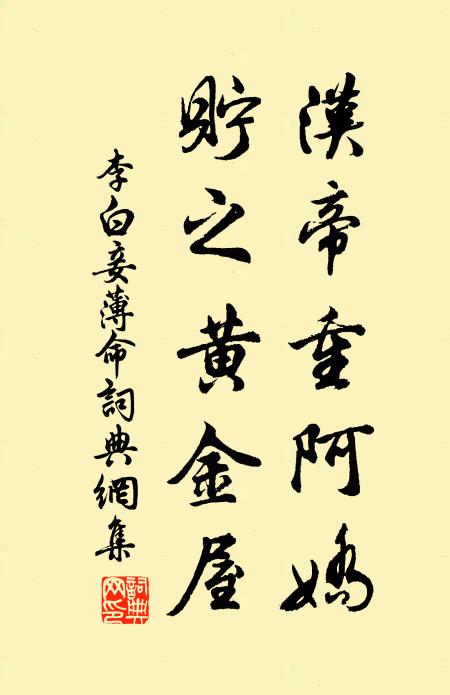 漢帝重阿嬌
貯之黃金屋
李白妾薄命詞典網集
詞典網印